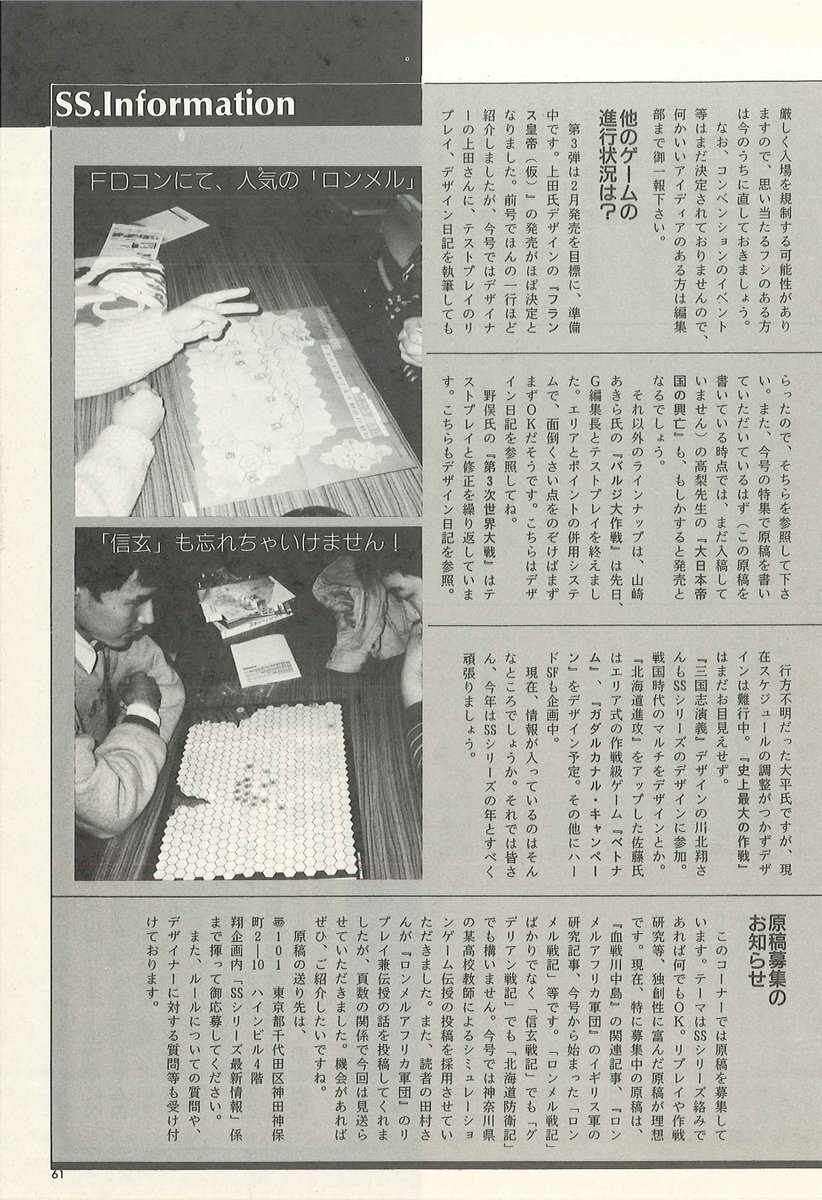 SS.Information
厳しく入場を規制する可能性があり
ますので、思い当たるフシのある方
は今のうちに直しておきましょう。
なお、コンベンションのイベント
等はまだ決定されておりませんので、
何かいいアイディアのある方は編集
部まで御一報下さい。
他のゲームの
進行状況は?
第3弾は2月発売を目標に、準備
中です。上田氏デザインの『フラン
ス皇帝(仮)』の発売がほぼ決定と
なりました。前号でほんの一行ほど
紹介しましたが、今号ではデザイナ
ーの上田さんに、テストプレイのリ
プレイ、デザイン日記を執筆しても
らったので、そちらを参照して下さ
い。また、今号の特集で原稿を書い
ていただいているはず(この原稿を
書いている時点では、まだ入稿して
いません)の高梨先生の『大日本帝
国の興亡』も、もしかすると発売と
なるでしょう。
それ以外のラインナップは、山崎
あきら氏の『バルジ大作戦』は先日、
G編集長とテストプレイを終えまし
た。エリアとポイントの併用システ
ムで、面倒くさい点をのぞけばまず
まずOKだそうです。こちらはデザ
イン日記を参照してね。
野俣氏の『第3次世界大戦』はテ
ストプレイと修正を繰り返していま
す。こちらもデザイン日記を参照。
行方不明だった大平氏ですが、現
在スケジュールの調整がつかずデザ
インは難行中。『史上最大の作戦』
はまだお目見えせず。
『三国志演義』デザインの川北翔さ
んもSSシリーズのデザインに参加。
戦国時代のマルチをデザインとか。
『北海道進攻』をアップした佐藤氏
はエリア式の作戦級ゲーム『ベトナ
ム』、『ガダルカナル・キャンペー
ン』をデザイン予定。その他にハー
ドSFも企画中。
現在、情報が入っているのはそん
なところでしょうか。それでは皆さ
ん、今年はSSシリーズの年とすべく
頑張りましょう。
FDコンにて、人気の「ロンメル」
「信玄」も忘れちゃいけません!
原稿募集の
お知らせ
このコーナーでは原稿を募集して
います。テーマはSSシリーズ絡みで
あれば何でもOK。リプレイや作戦
研究等、独創性に富んだ原稿が理想
です。現在、特に募集中の原稿は、
『血戦川中島』の関連記事、『ロン
メルアフリカ軍団』のイギリス軍の
研究記事、今号から始まった「ロン
メル戦記」等です。「ロンメル戦記」
ばかりでなく「信玄戦記」でも「グ
デリアン戦記」でも「北海道防衛記」
でも構いません。今号では神奈川県
の某高校教師によるシミュレーショ
ンゲーム伝授の投稿を採用させてい
ただきました。また、読者の田村さ
んが『ロンメルアフリカ軍団』のリ
プレイ兼伝授の話を投稿してくれま
したが、頁数の関係で今回は見送ら
せていただきました。機会があれば
ぜひ、ご紹介したいですね。
原稿の送り先は、
〠101 東京都千代田区神田神保
町2―10 ハインビル4階
翔企画内「SSシリーズ最新情報」係
まで揮って御応募してください。
また、ルールについての質問や、
デザイナーに対する質問等も受け付
けております。
61